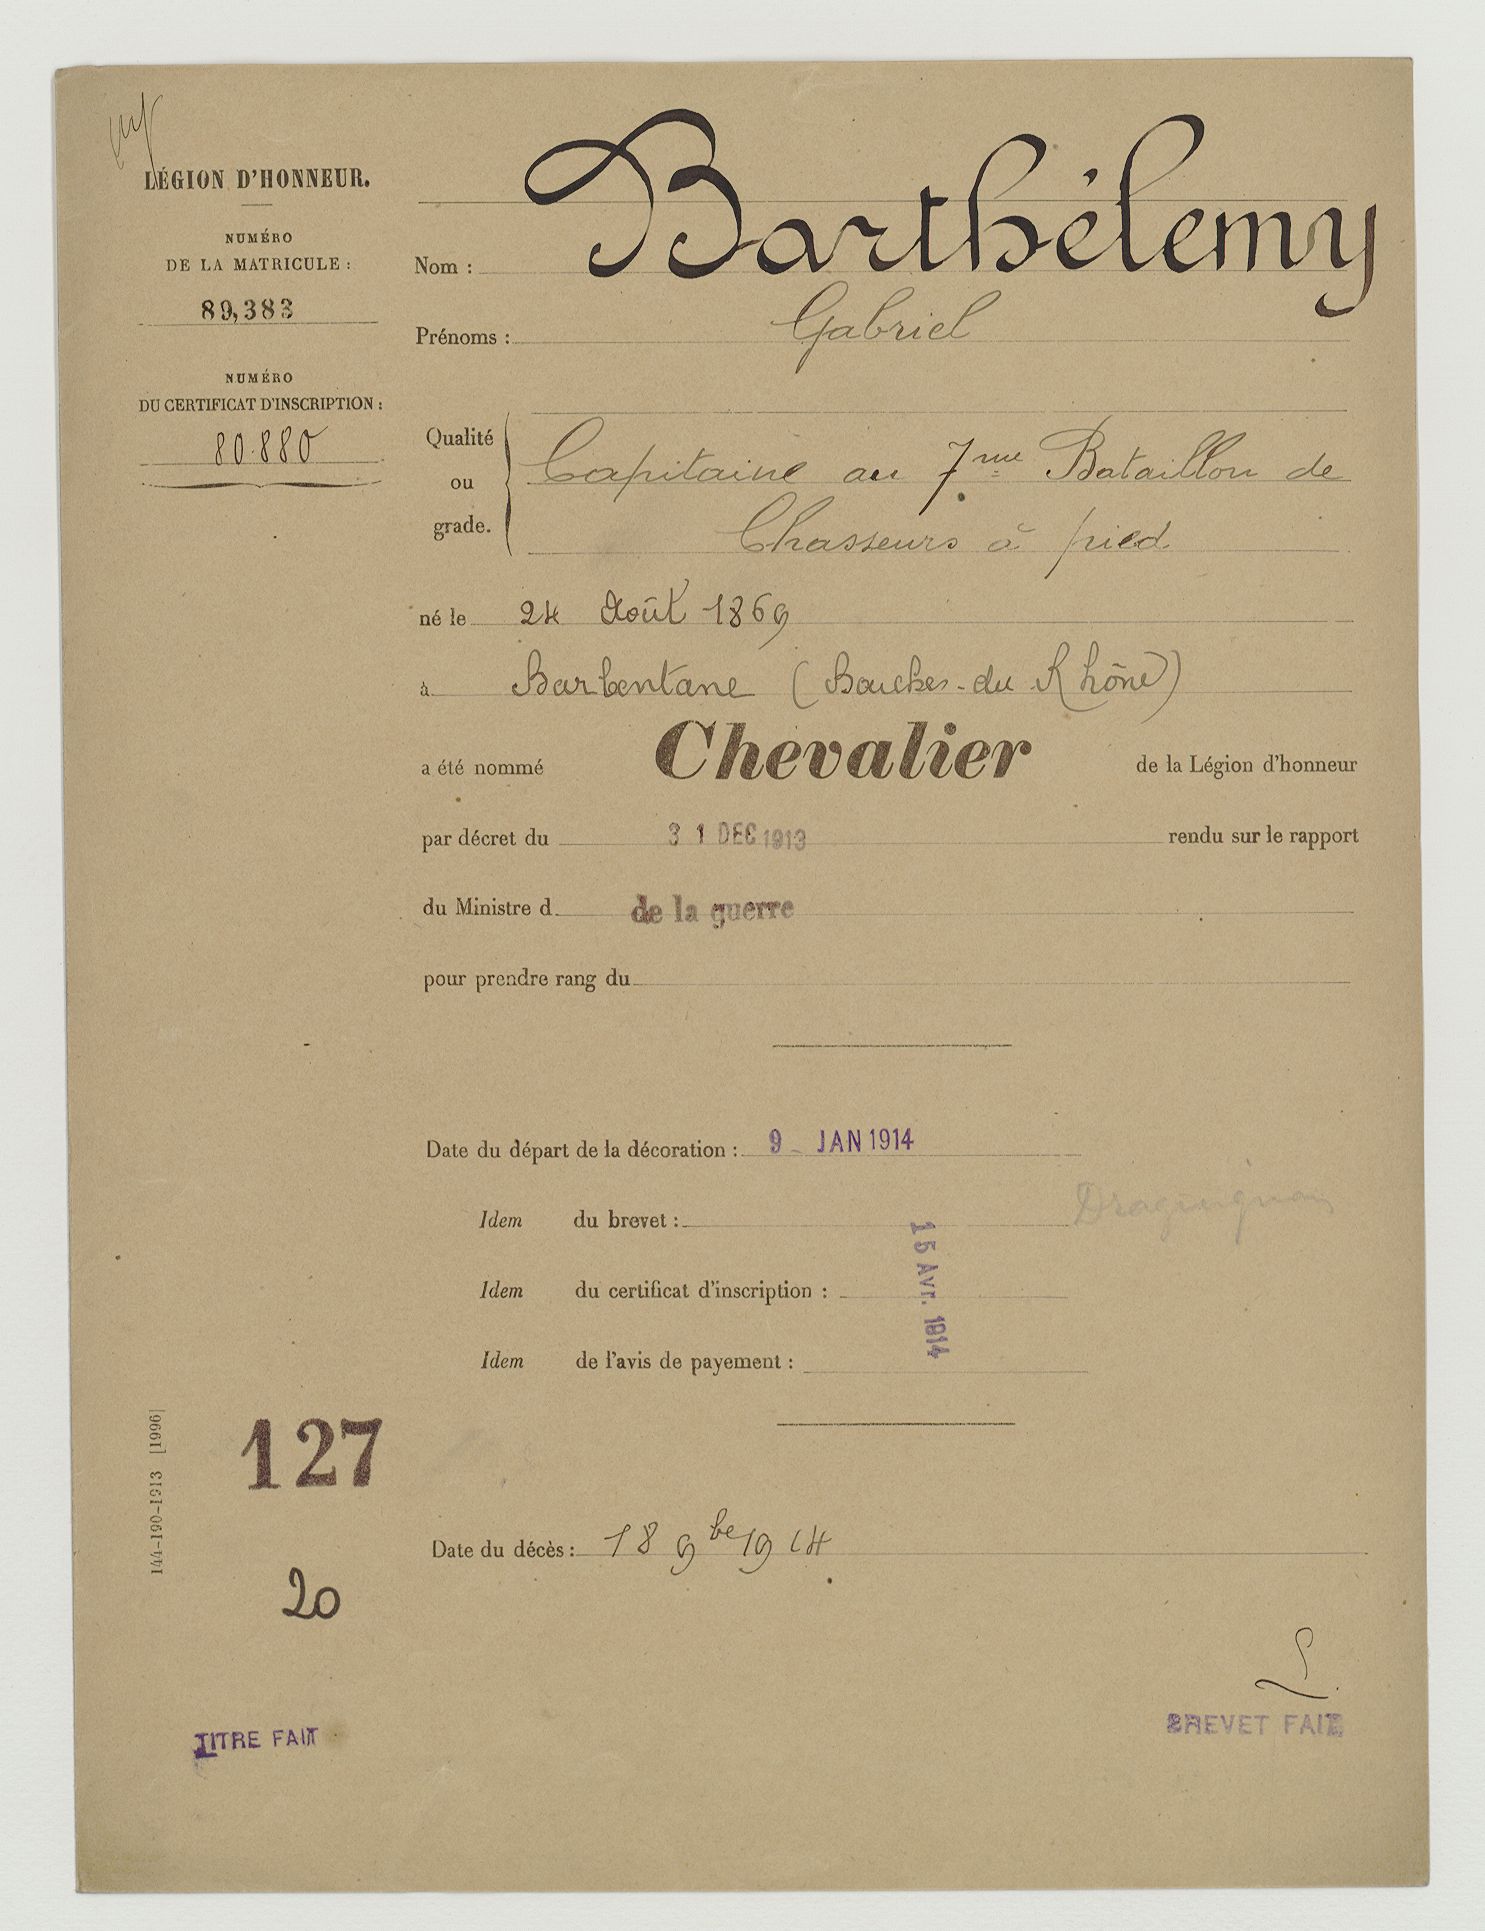 LÉGION D'HONNEUR.
NUMÉRO
DE LA MATRICULE :
89,383
NUMÉRO
DU CERTIFICAT D'INSCRIPTION :
80.880
Nom : Barthélemy
Prénoms : Gabriel
Qualité
ou
grade.
Capitaine au 7me Bataillon de
Chasseurs à pied
né le 24 Août 1869
à Barbentane (Bouches-du Rhône)
a été nommé Chevalier de la Légion d'honneur
par décret du 31 DEC 1913 rendu sur le rapport
du Ministre d de la guerre
pour prendre rang du
Date du départ de la décoration : 9 - JAN 1914
Draguignan
Idem du brevet :
Idem du certificat d'inscription :
15 Avr. 1914
Idem de l'avis de payement :
144-190-1913 [1996]
127
Date du décès : 18 9be 1914
20
TITRE FAIT
BREVET FAIT